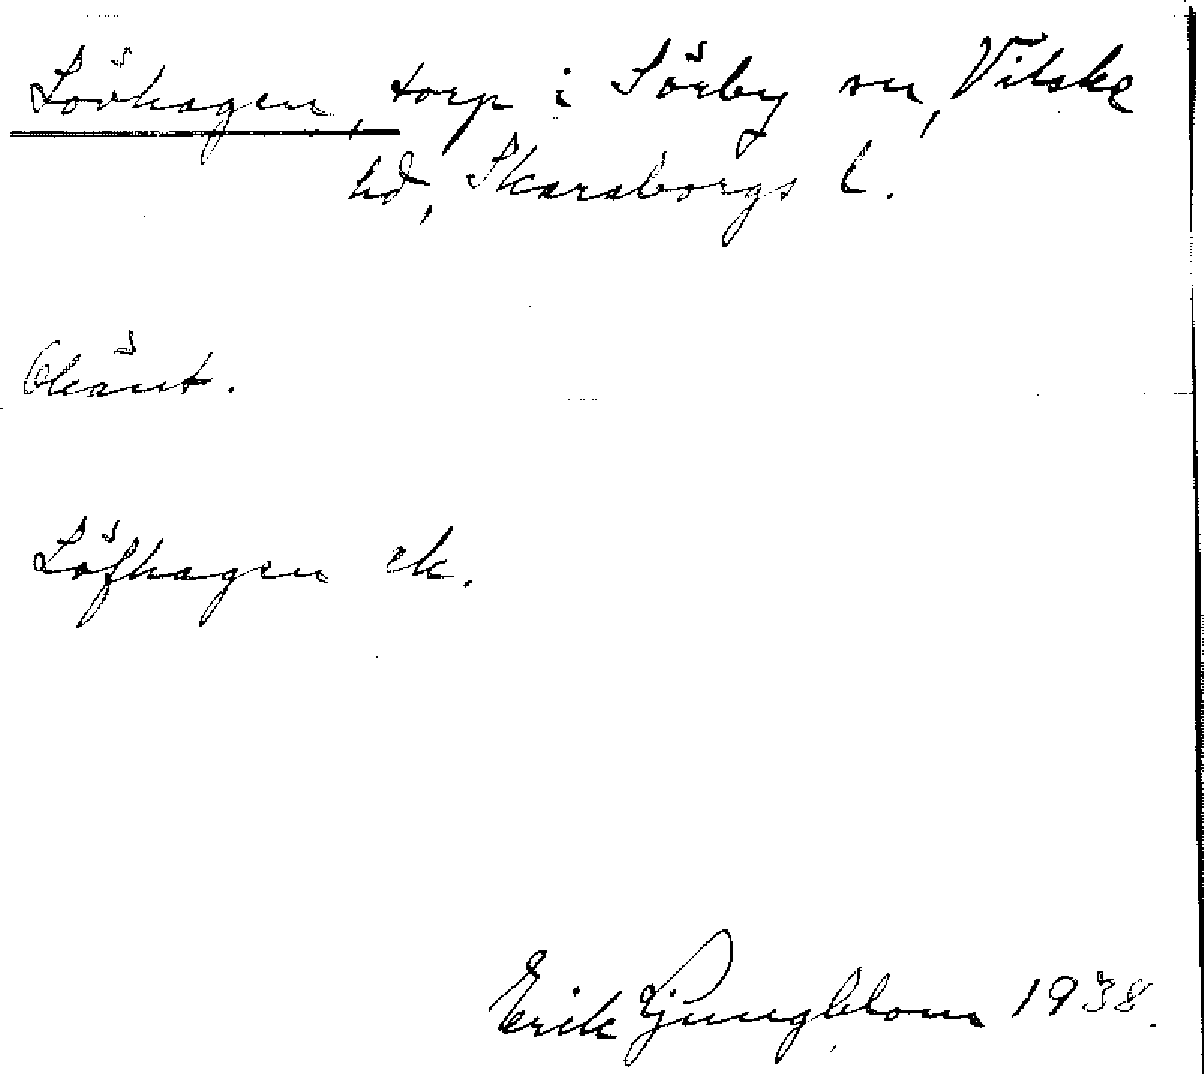 Lövhagen, torp i Sörby sn, Vilske
hd, Skaraborgs l.
Okänt.
Löfhagen ek.
Erik Ljungblom 1938.